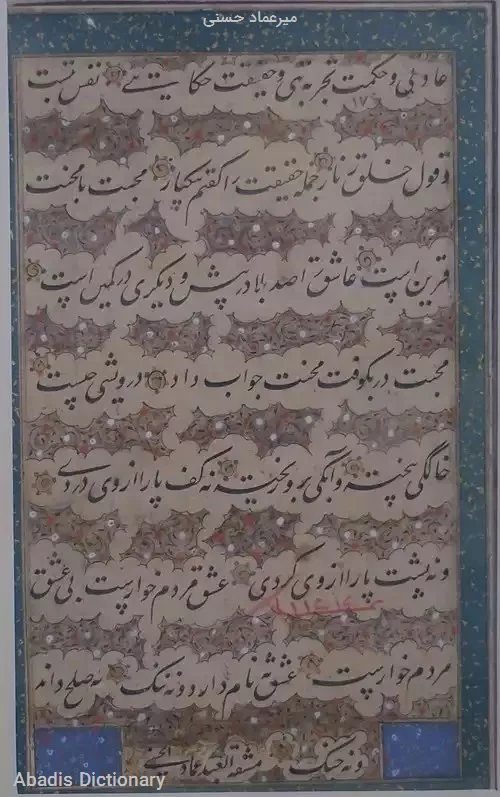 میرعماد حسنی
عادتی و حکمت تجربه تنی و حقیقت حکایت نیست نفس تست
۱۷
و قول خلق نار جمله حقیقت را گفتم یکبار محبت با محنت
قرین است عاشق را صد بلا در پیش و دیگری در کمین است
محبت در بکوفت محنت جواب داد درویشی چیست
خاکگی بیخته و آبگی برو ریخته نه کف پا را از وی دردی
و نه پشت پا را از وی گردی عشق مردم خوارست بی عشق
مردم خوارست عشق نه نام دارد و نه ننک نه صلح داند
و نه جنک مشقه العبد عماد الحسنی
Abadis Dictionary